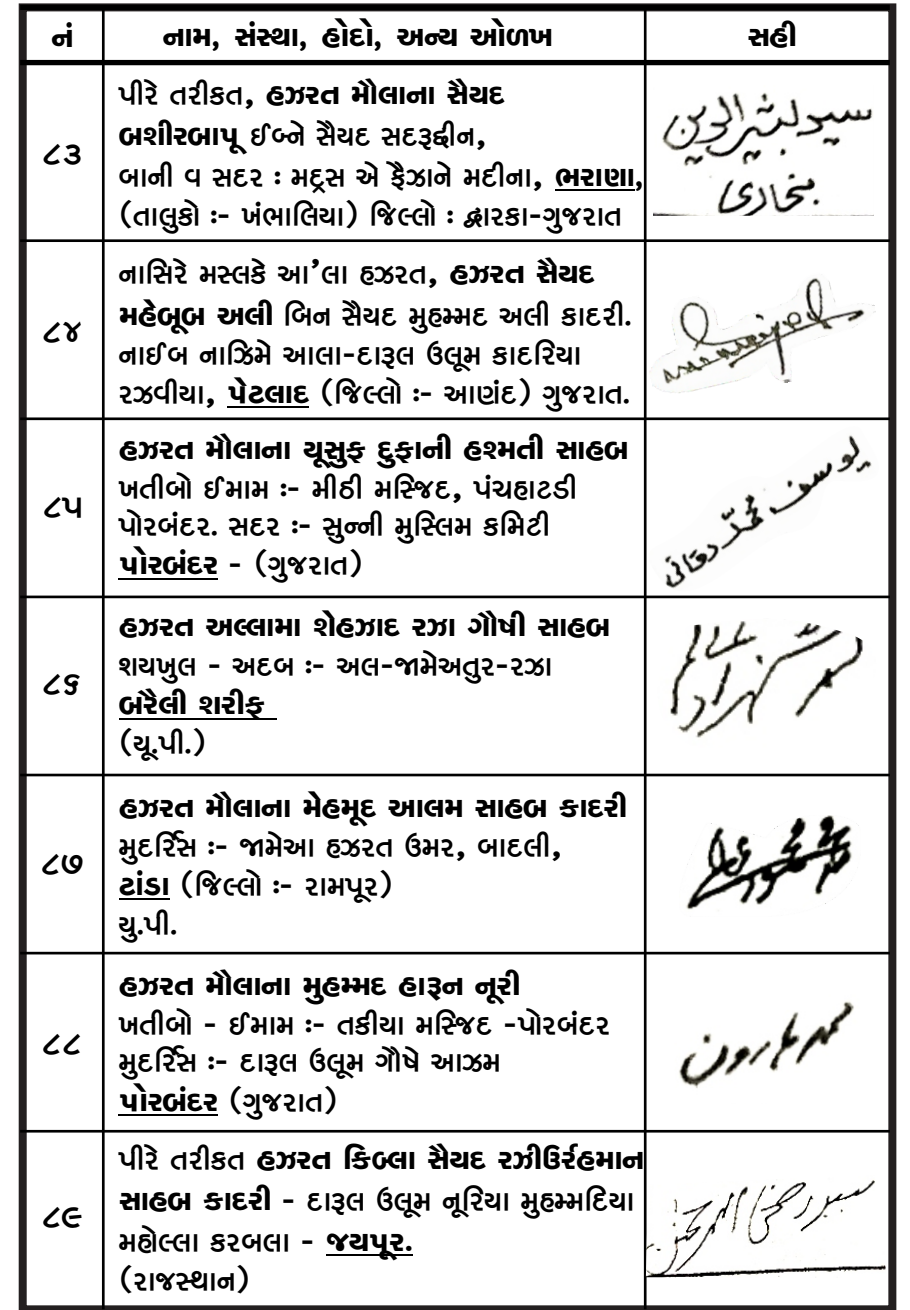 નં નામ, સંસ્થા, હોદો, અન્ય ઓળખ સહી
૮૩
પીરે તરીકત, હઝરત મૌલાના સૈયદ
બશીરબાપૂ ઈબ્ને સૈયદ સદરૂદ્દીન,
બાની વ સદર : મદ્રસ એ ફૈઝાને મદીના, ભરાણા,
(તાલુકો :- ખંભાલિયા) જિલ્લો : દ્વારકા-ગુજરાત
سید بشیر الدین
بخاری
૮૪
નાસિરે મસ્લકે આ'લા હઝરત, હઝરત સૈયદ
મહેબૂબ અલી બિન સૈયદ મુહમ્મદ અલી કાદરી.
નાઈબ નાઝિમે આલા-દારૂલ ઉલૂમ કાદરિયા
રઝવીયા, પેટલાદ (જિલ્લો :- આણંદ) ગુજરાત.
૮૫
હઝરત મૌલાના યૂસુફ દુફાની હશ્મતી સાહબ
ખતીબો ઈમામ :- મીઠી મસ્જિદ, પંચહાટડી
પોરબંદર. સદર :- સુન્ની મુસ્લિમ કમિટી
પોરબંદર - (ગુજરાત)
یوسف محمد دفانی
૮૬
હઝરત અલ્લામા શેહઝાદ રઝા ગૌષી સાહબ
શયખુલ - અદબ :- અલ-જામેઅતુર-રઝા
બરૈલી શરીફ
(યૂ.પી.)
૮૭
હઝરત મૌલાના મેહમૂદ આલમ સાહબ કાદરી
મુદર્રિસ :- જામેઆ હઝરત ઉમર, બાદલી,
ટાંડા (જિલ્લો :- રામપૂર)
યુ.પી.
૮૮
હઝરત મૌલાના મુહમ્મદ હારૂન નૂરી
ખતીબો - ઈમામ :- તકીયા મસ્જિદ -પોરબંદર
મુદર્રિસ :- દારૂલ ઉલૂમ ગૌષે આઝમ
પોરબંદર (ગુજરાત)
محمد ہارون
૮૯
પીરે તરીકત હઝરત કિબ્લા સૈયદ રઝીઉર્રહમાન
સાહબ કાદરી - દારૂલ ઉલૂમ નૂરિયા મુહમ્મદિયા
મહોલ્લા કરબલા - જયપૂર.
(રાજસ્થાન)